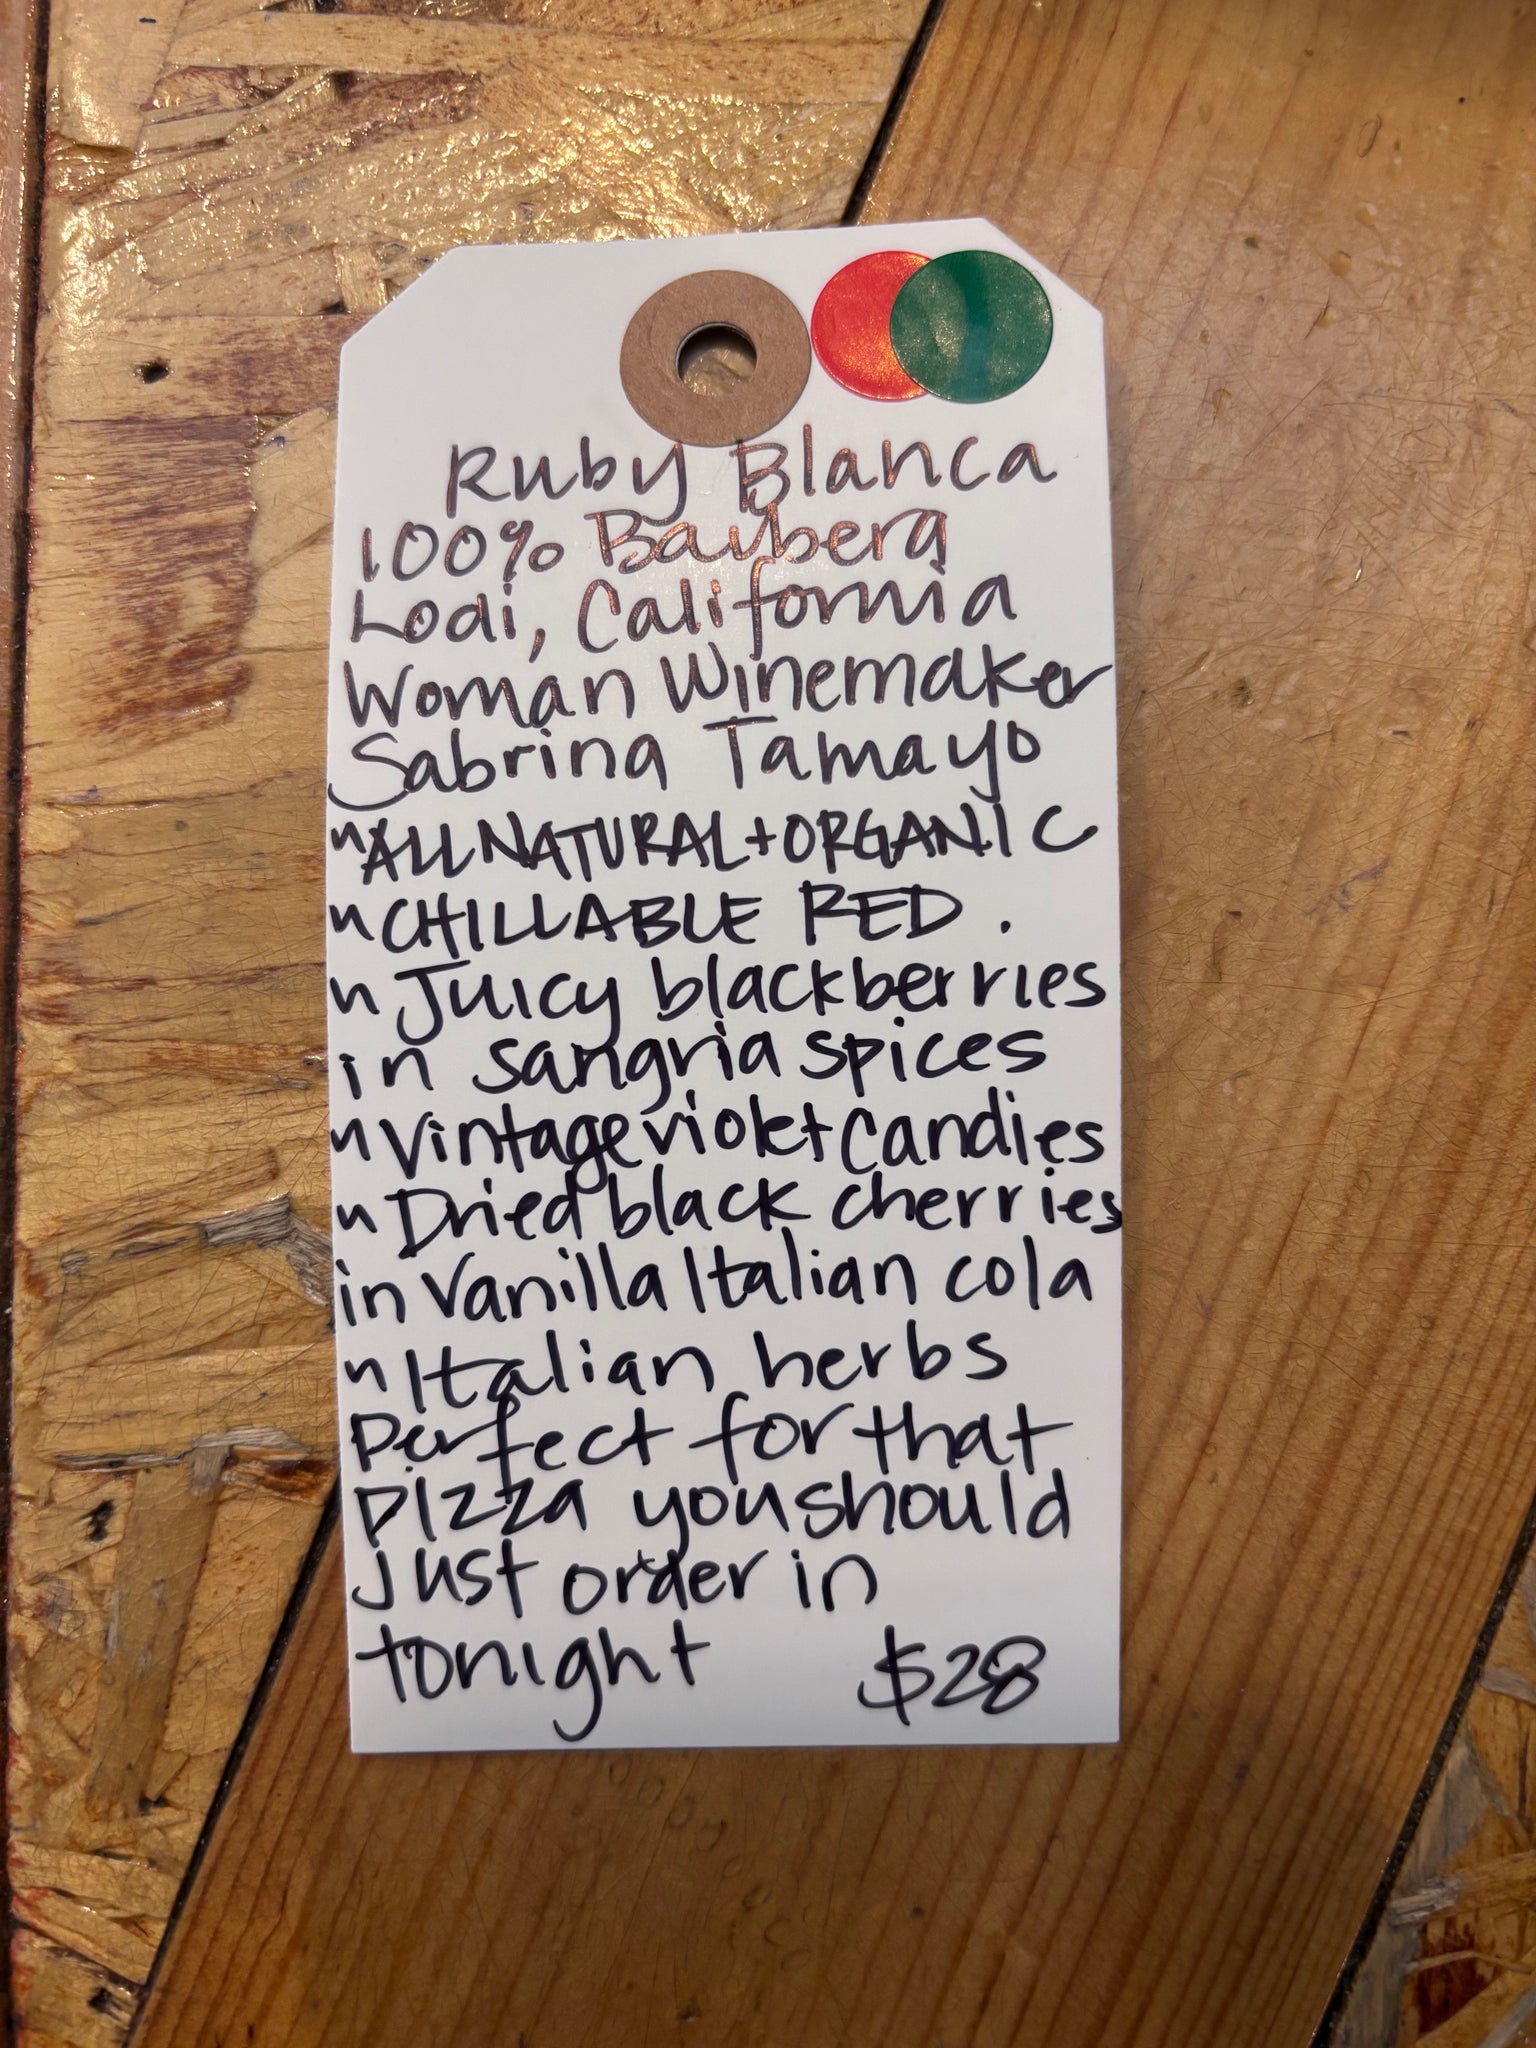 Ruby Blanca
100% Barbera
Lodi, California
Woman Winemaker
Sabrina Tamayo
~ALL NATURAL + ORGANIC
~CHILLABLE RED.
~Juicy blackberries
in sangria spices
~Vintage violet candies
~Dried black cherries
in Vanilla Italian cola
~Italian herbs
Perfect for that
pizza you should
just order in
tonight $28